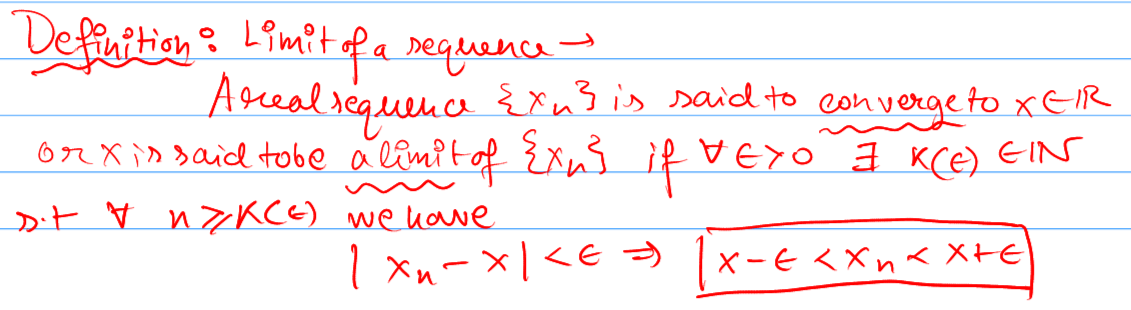 Definition: Limit of a sequence →
A real sequence {xₙ} is said to converge to x ∈ ℝ
or x is said to be a limit of {xₙ} if ∀ ∈ > 0 ∃ K(∈) ∈ ℕ
s.t ∀ n ≥ K(∈) we have
| xₙ - x | < ∈ ⇒ x - ∈ < xₙ < x + ∈